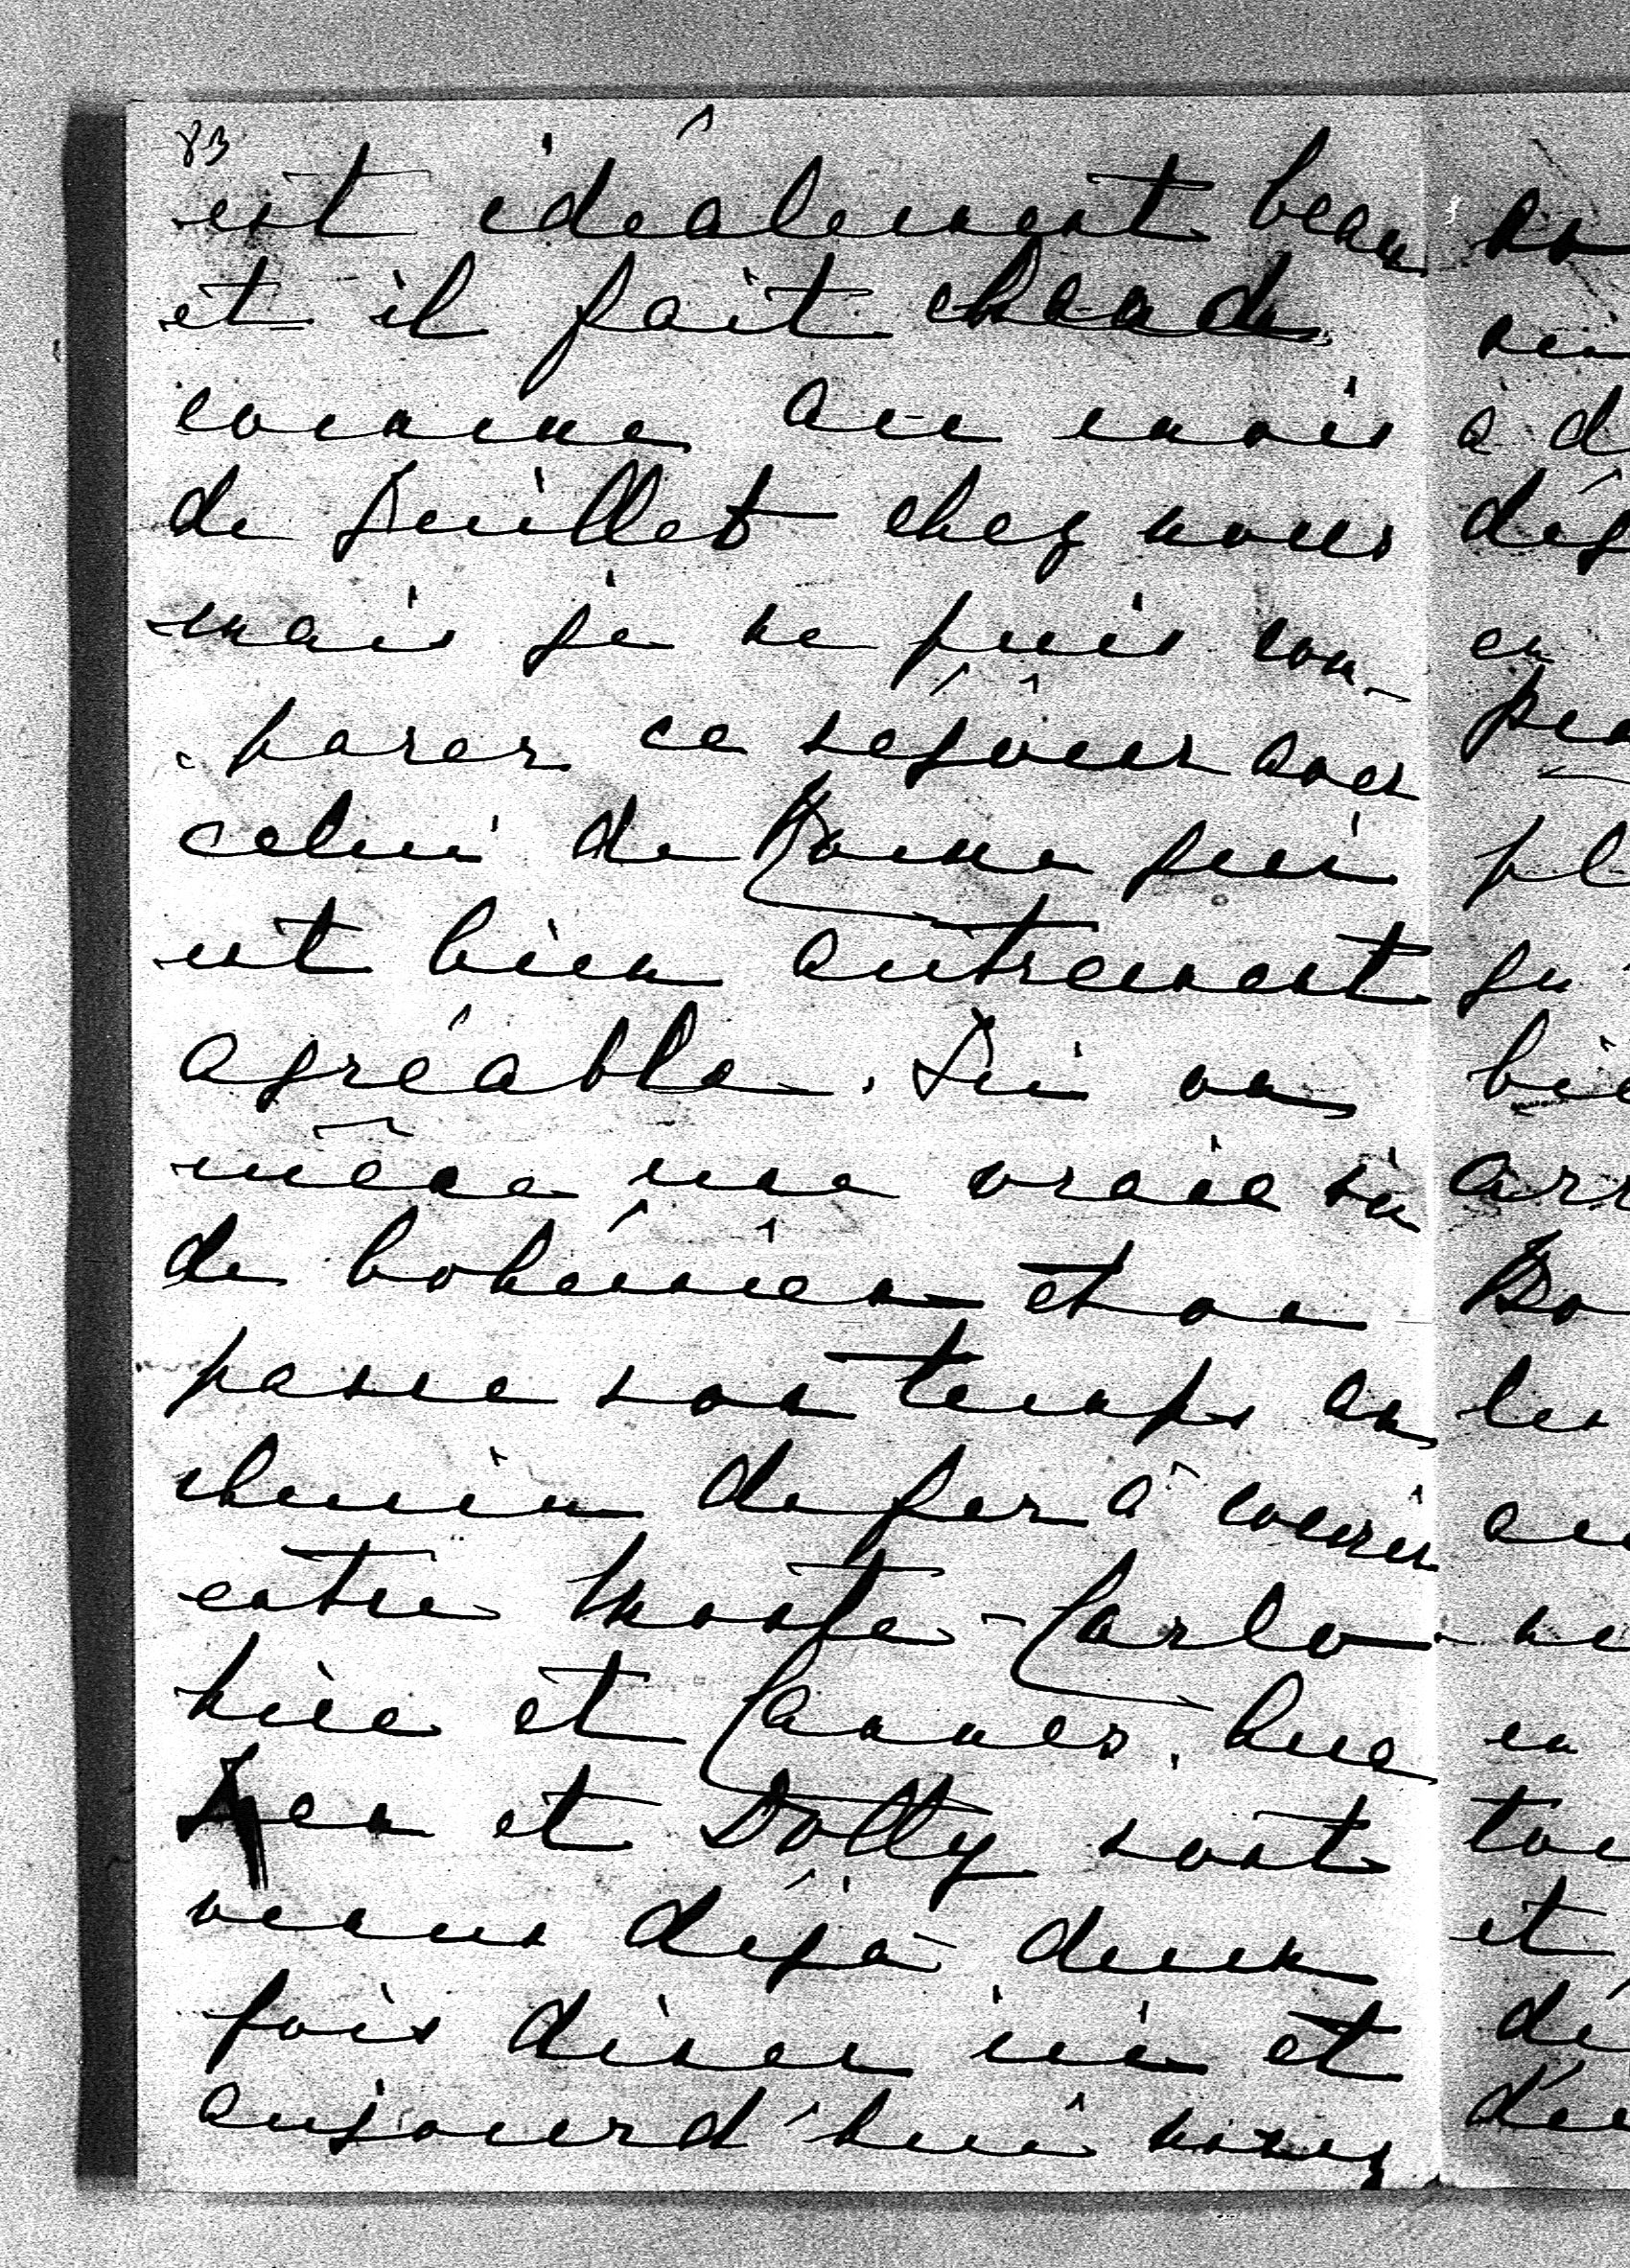 83
est idéalement beau
et il fait chaud
comme au mois
de Juillet chez nous
mais je ne puis com-
parer ce séjour avec
celui de Rome qui
est bien autrement
agréable. Ici on
mène une vraie vie
de bohémien et on
passe son temps en
chemin de fer à courir
entre Monte-Carlo
Nice et Cannes.
et Dolly sont
venus déjà deux
fois diner ici et
aujourd'hui nous